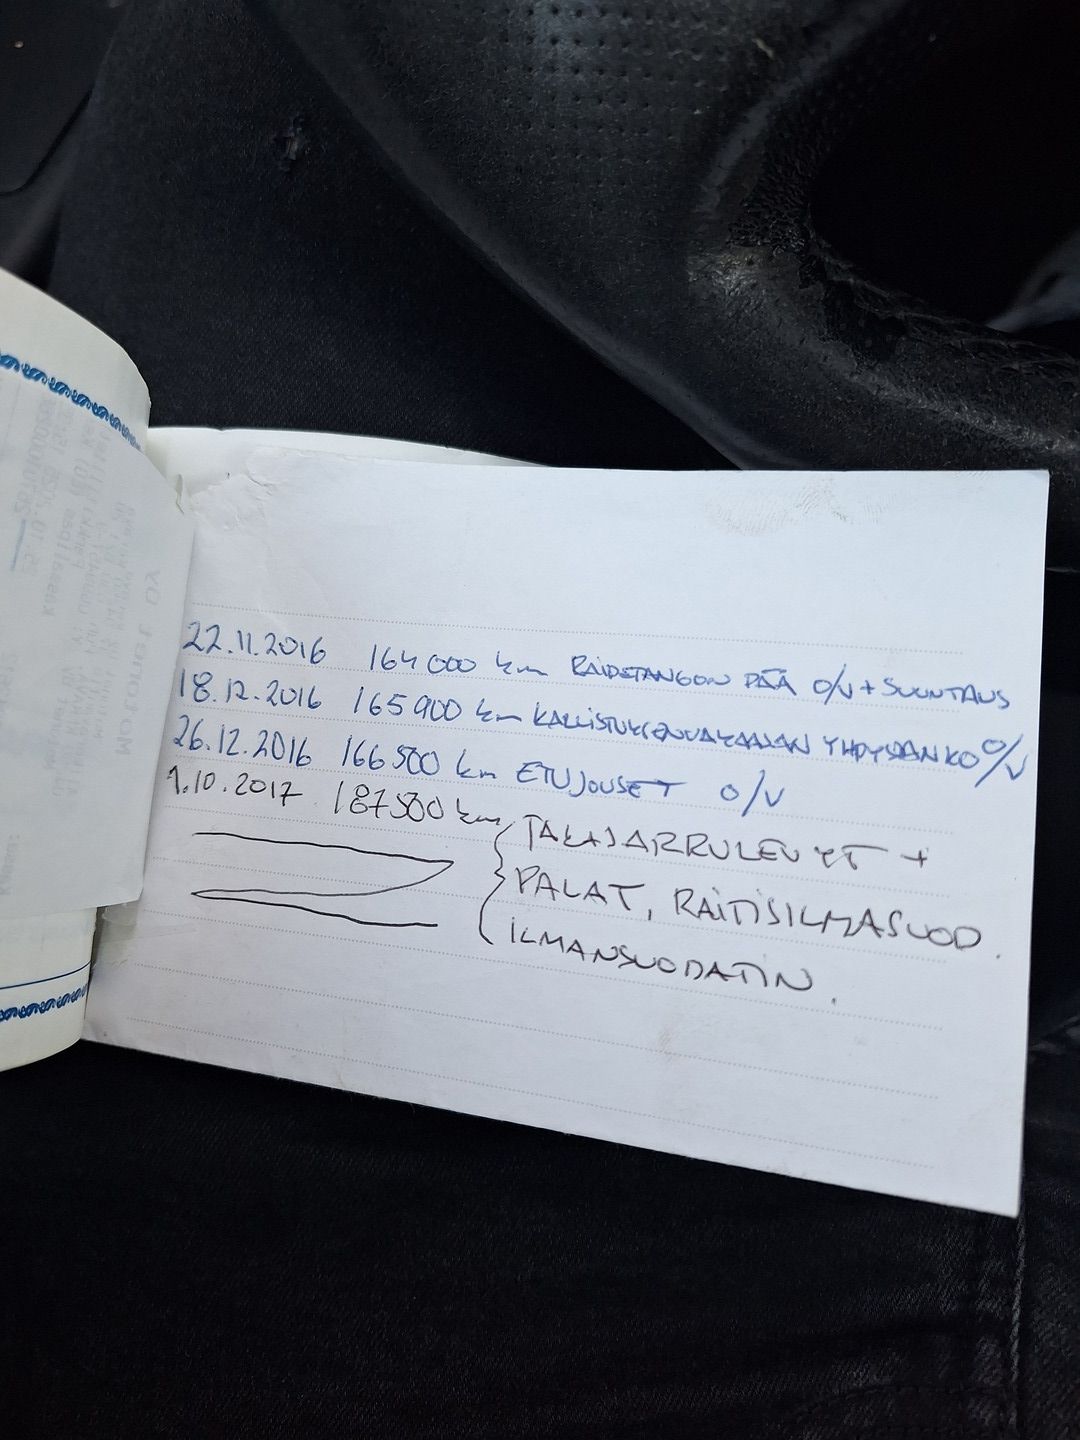 22.11.2016 164000 km RAIDETANGON PÄÄ O/V + SUUNTAUS
18.12.2016 165900 km KALLISTUKSENVAKAAJAN YHDYSTANKO O/V
26.12.2016 166500 km ETUJOUSET O/V
1.10.2017 187500 km TAKAJARRULEVYT +
PALAT, RAITISILMASUOD.
ILMANSUODATIN.